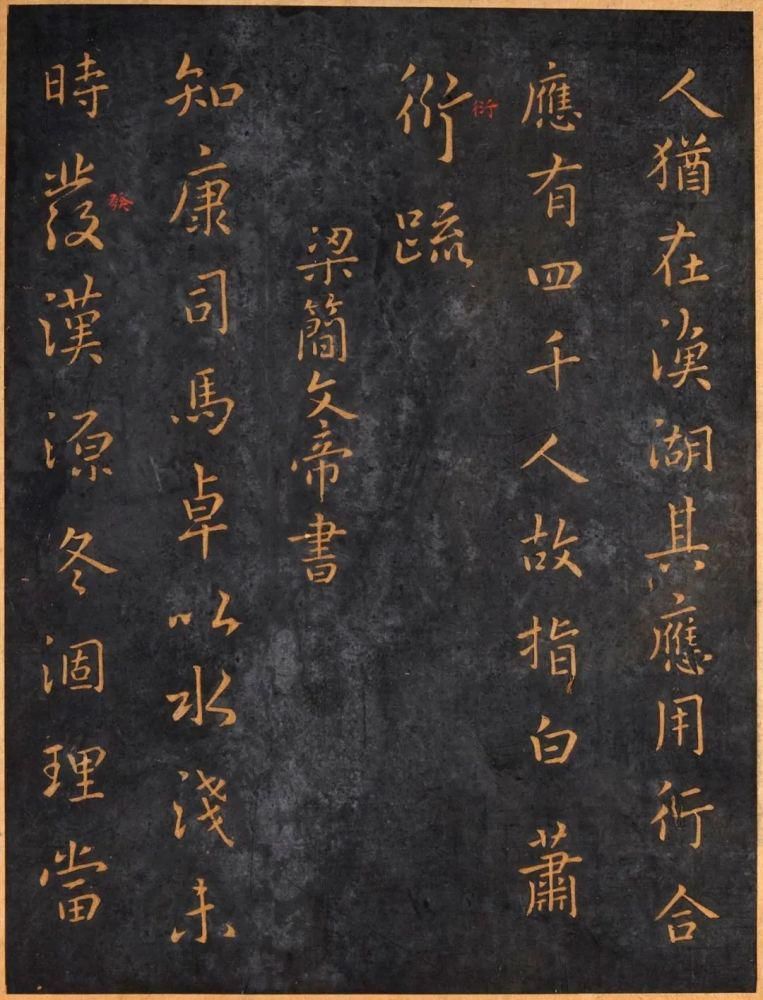 人猶在漁湖其應用衍合
應有四千人故指白 蕭
衍疏
衍
梁簡文帝書
知康司馬卓以水淺未
時發漢源冬涸理當
發